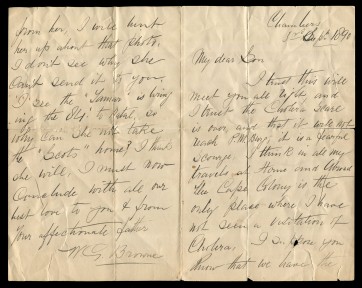 Chambers
Sept. 1890
My dear Son
I trust this will
meet you all right and
I trust the Cholera Scare
is over, and that it will not
reach P.M.Burg, it is a fearful
Scourge. I think in all my
travels at Home and Abroad
the Cape Colony is the
only place where I have
not seen a visitation of
Cholera, I suppose you
know that we have the
from her, I will hunt
her up about that photo,
I don't see why she
can't send it to you,
I see the "Tamar" is bring
ing the to Natal, so
why can she not take
the "Scots" home? I think
she will, I must now
Conclude with all our
best love to you & from
Your affectionate father
W. G. Browne